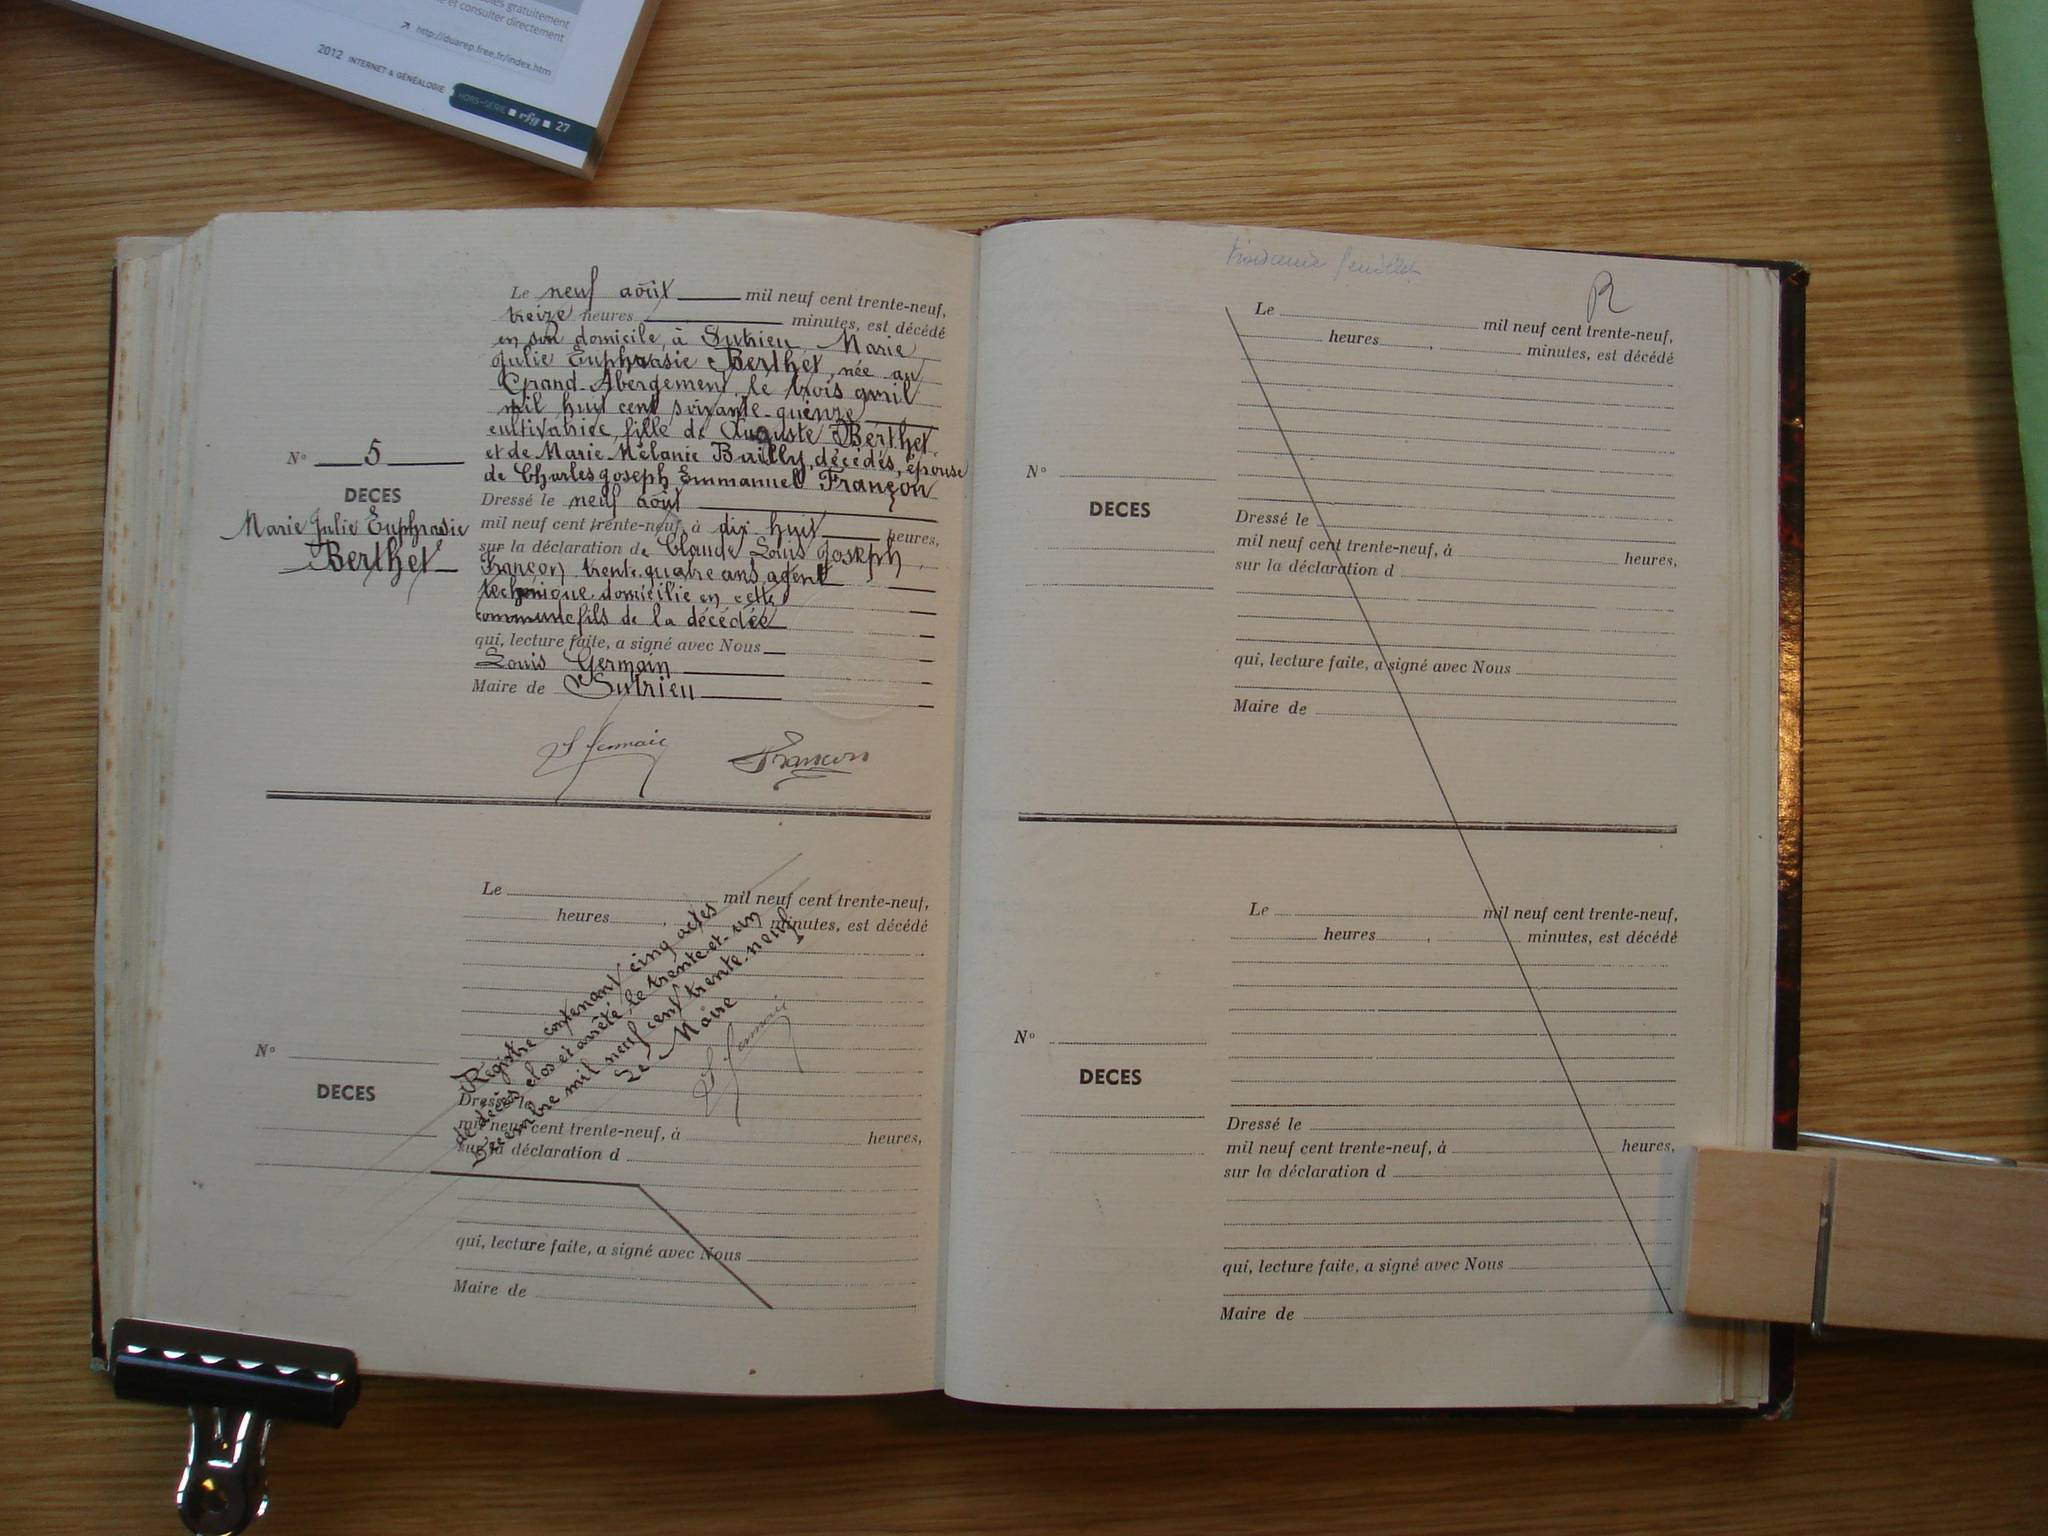 bles gratuitement
e et consulter directement
↗ http://duarep.free.fr/index.htm
2012 INTERNET & GÉNÉALOGIE HORS-SÉRIE ■ rfg ■ 27
Le neuf août mil neuf cent trente-neuf,
treize heures minutes, est décédé
en son domicile, à Sutrieu, Marie
Julie Euphrasie Berthet, née au
Grand-Abergement, le trois avril
mil huit cent soixante-quinze
cultivatrice, fille de Auguste Berthet
et de Marie Mélanie Bailly, décédés, épouse
de Charles Joseph Emmanuel Françon
N° 5
DECES
Marie Julie Euphrasie
Berthet
Dressé le neuf août
mil neuf cent trente-neuf, à dix huit heures,
sur la déclaration de Claude Louis Joseph
Françon, trente-quatre ans, agent
technique domicilié en cette
commune fils de la décédée
qui, lecture faite, a signé avec Nous
Louis Germain
Maire de Sutrieu
L Germain Françon
Le mil neuf cent trente-neuf,
heures, minutes, est décédé
Registre contenant cinq actes
de décès clos et arrêté, le trente-et-un
Décembre mil neuf cent trente-neuf
Le Maire
L Germain
N°
DECES
Dressé le
mil neuf cent trente-neuf, à heures,
sur la déclaration d
qui, lecture faite, a signé avec Nous
Maire de
feuillet
R
Le mil neuf cent trente-neuf,
heures, minutes, est décédé
N°
DECES
Dressé le
mil neuf cent trente-neuf, à heures,
sur la déclaration d
qui, lecture faite, a signé avec Nous
Maire de
Le mil neuf cent trente-neuf,
heures, minutes, est décédé
N°
DECES
Dressé le
mil neuf cent trente-neuf, à heures,
sur la déclaration d
qui, lecture faite, a signé avec Nous
Maire de